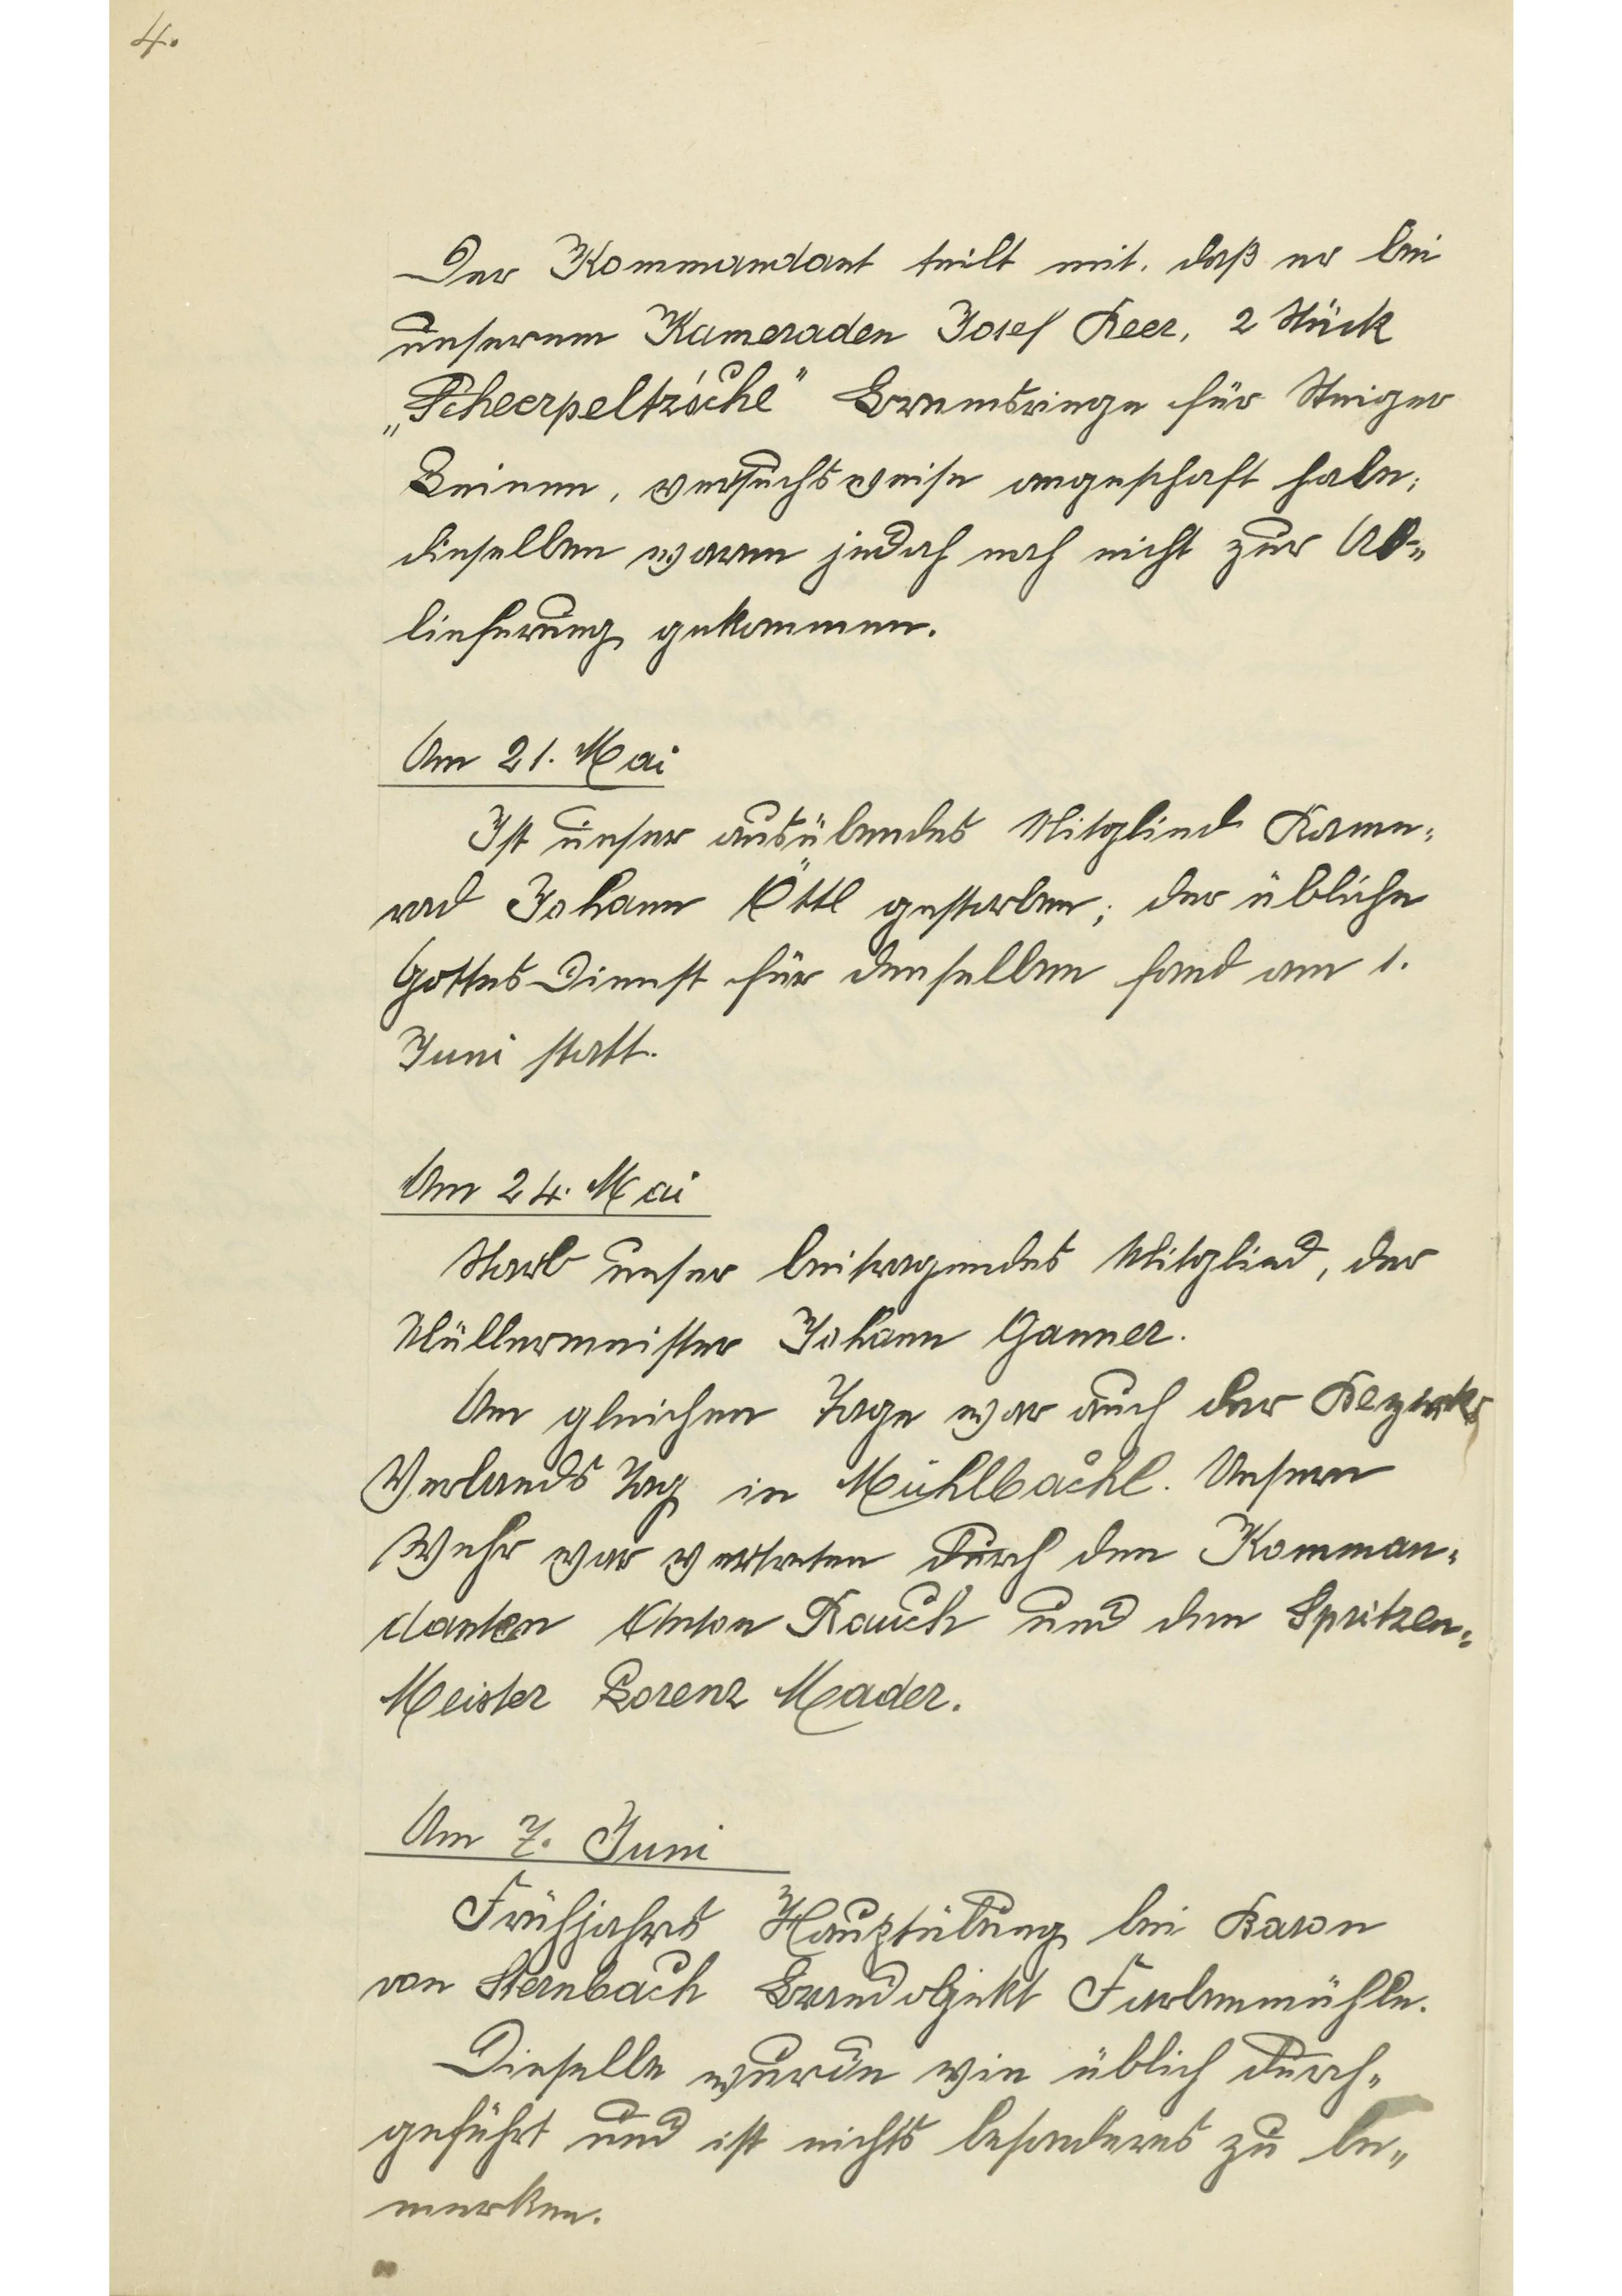 4.
Der Kommandant teilt mit, daß er bei
unserem Kameraden Josef Beer, 2 Stück
„Scheerpeltz'sche" Bremsringe für Steiger
Leinen, versuchsweise angeschaft habe;
dieselben waren jedoch noch nicht zur Ab-
lieferung gekommen.
Am 21. Mai
Ist unser ausübendes Mitglied Kame-
rad Johann Öttl gestorben; der übliche
Gottes Dienst für denselben fand am 1.
Juni statt.
Am 24. Mai
Starb unser beitragendes Mitglied, der
Müllermeister Johann Ganner.
Am gleichen Tage war auch der Bezirks
Verbands Tag in Mühlbachl. Unsere
Wehr war vertreten durch den Komman-
danten Anton Rauch und dem Spritzen-
Meister Lorenz Mader.
Am 7. Juni
Frühjahrs Hauptübung bei Baron
von Sternbach Brandobjekt Farbenmühle.
Dieselbe wurde wie üblich durch-
geführt und ist nichts besonderes zu be-
merken.